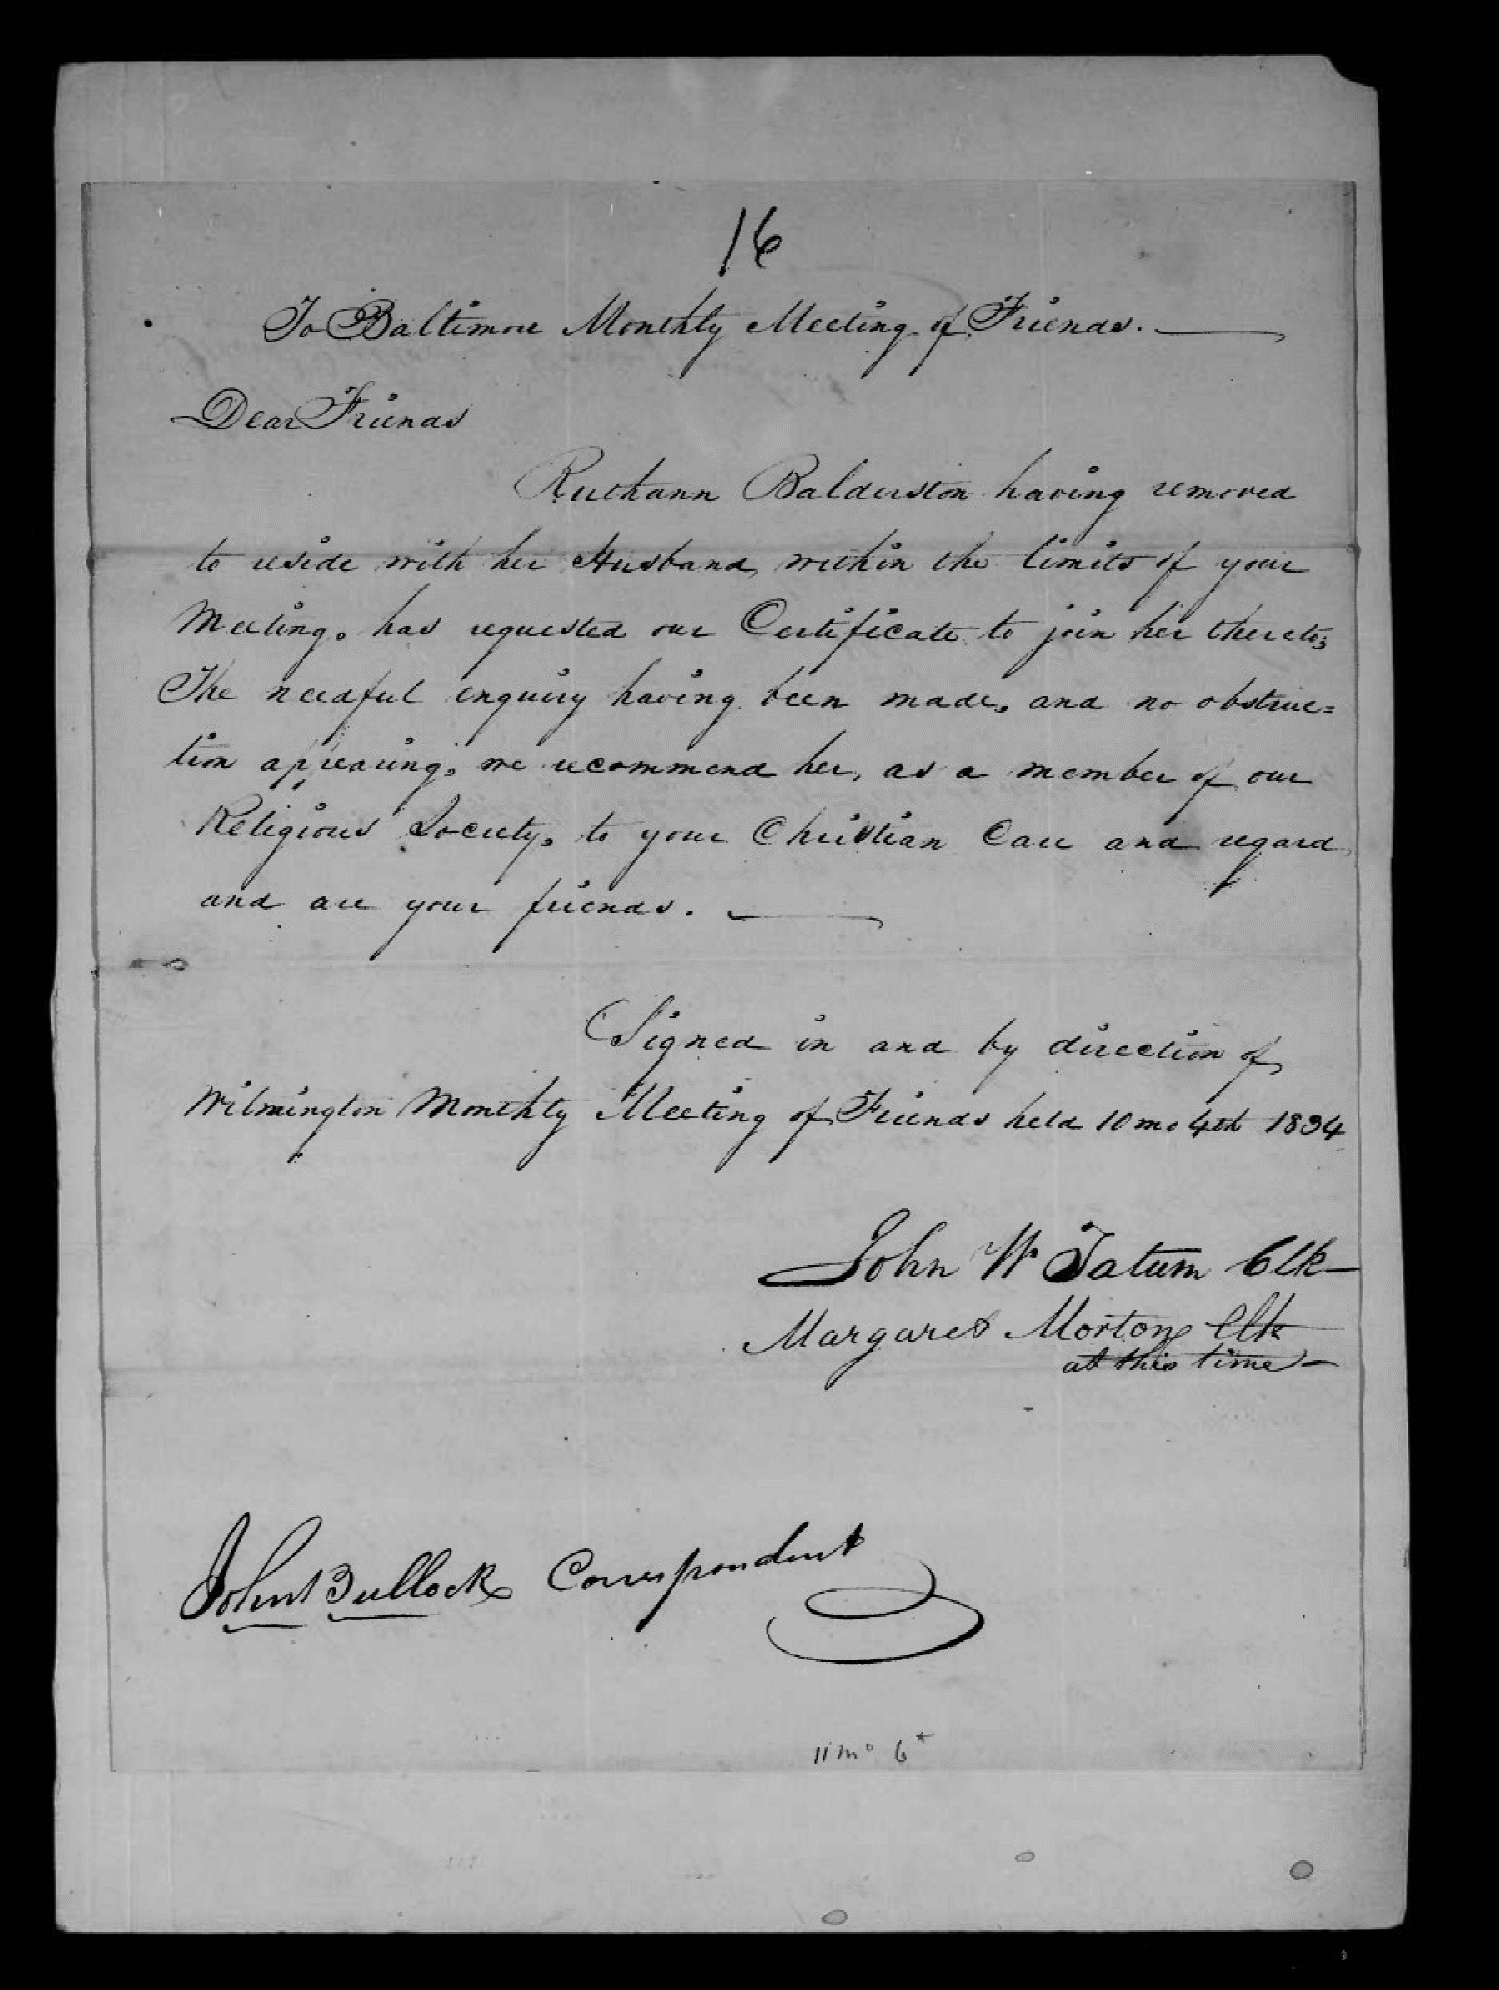 16
To Baltimore Monthly Meeting of Friends.
Dear Friends
Ruthann Balderston having removed
to reside with her Husband, within the limits of your
Meeting, has requested our Certificate to join her thereto;
The needful enquiry having been made, and no obstruc=
tion appearing, we recommend her, as a member of our
Religious Society, to your Christian Care and regard,
and are your friends.
Signed in and by direction of
Wilmington Monthly Meeting of Friends held 10 mo 4th 1834
John W Tatum Clk
Margaret Morton Clk
at this time
John Bullock Correspondent
11 mo 6